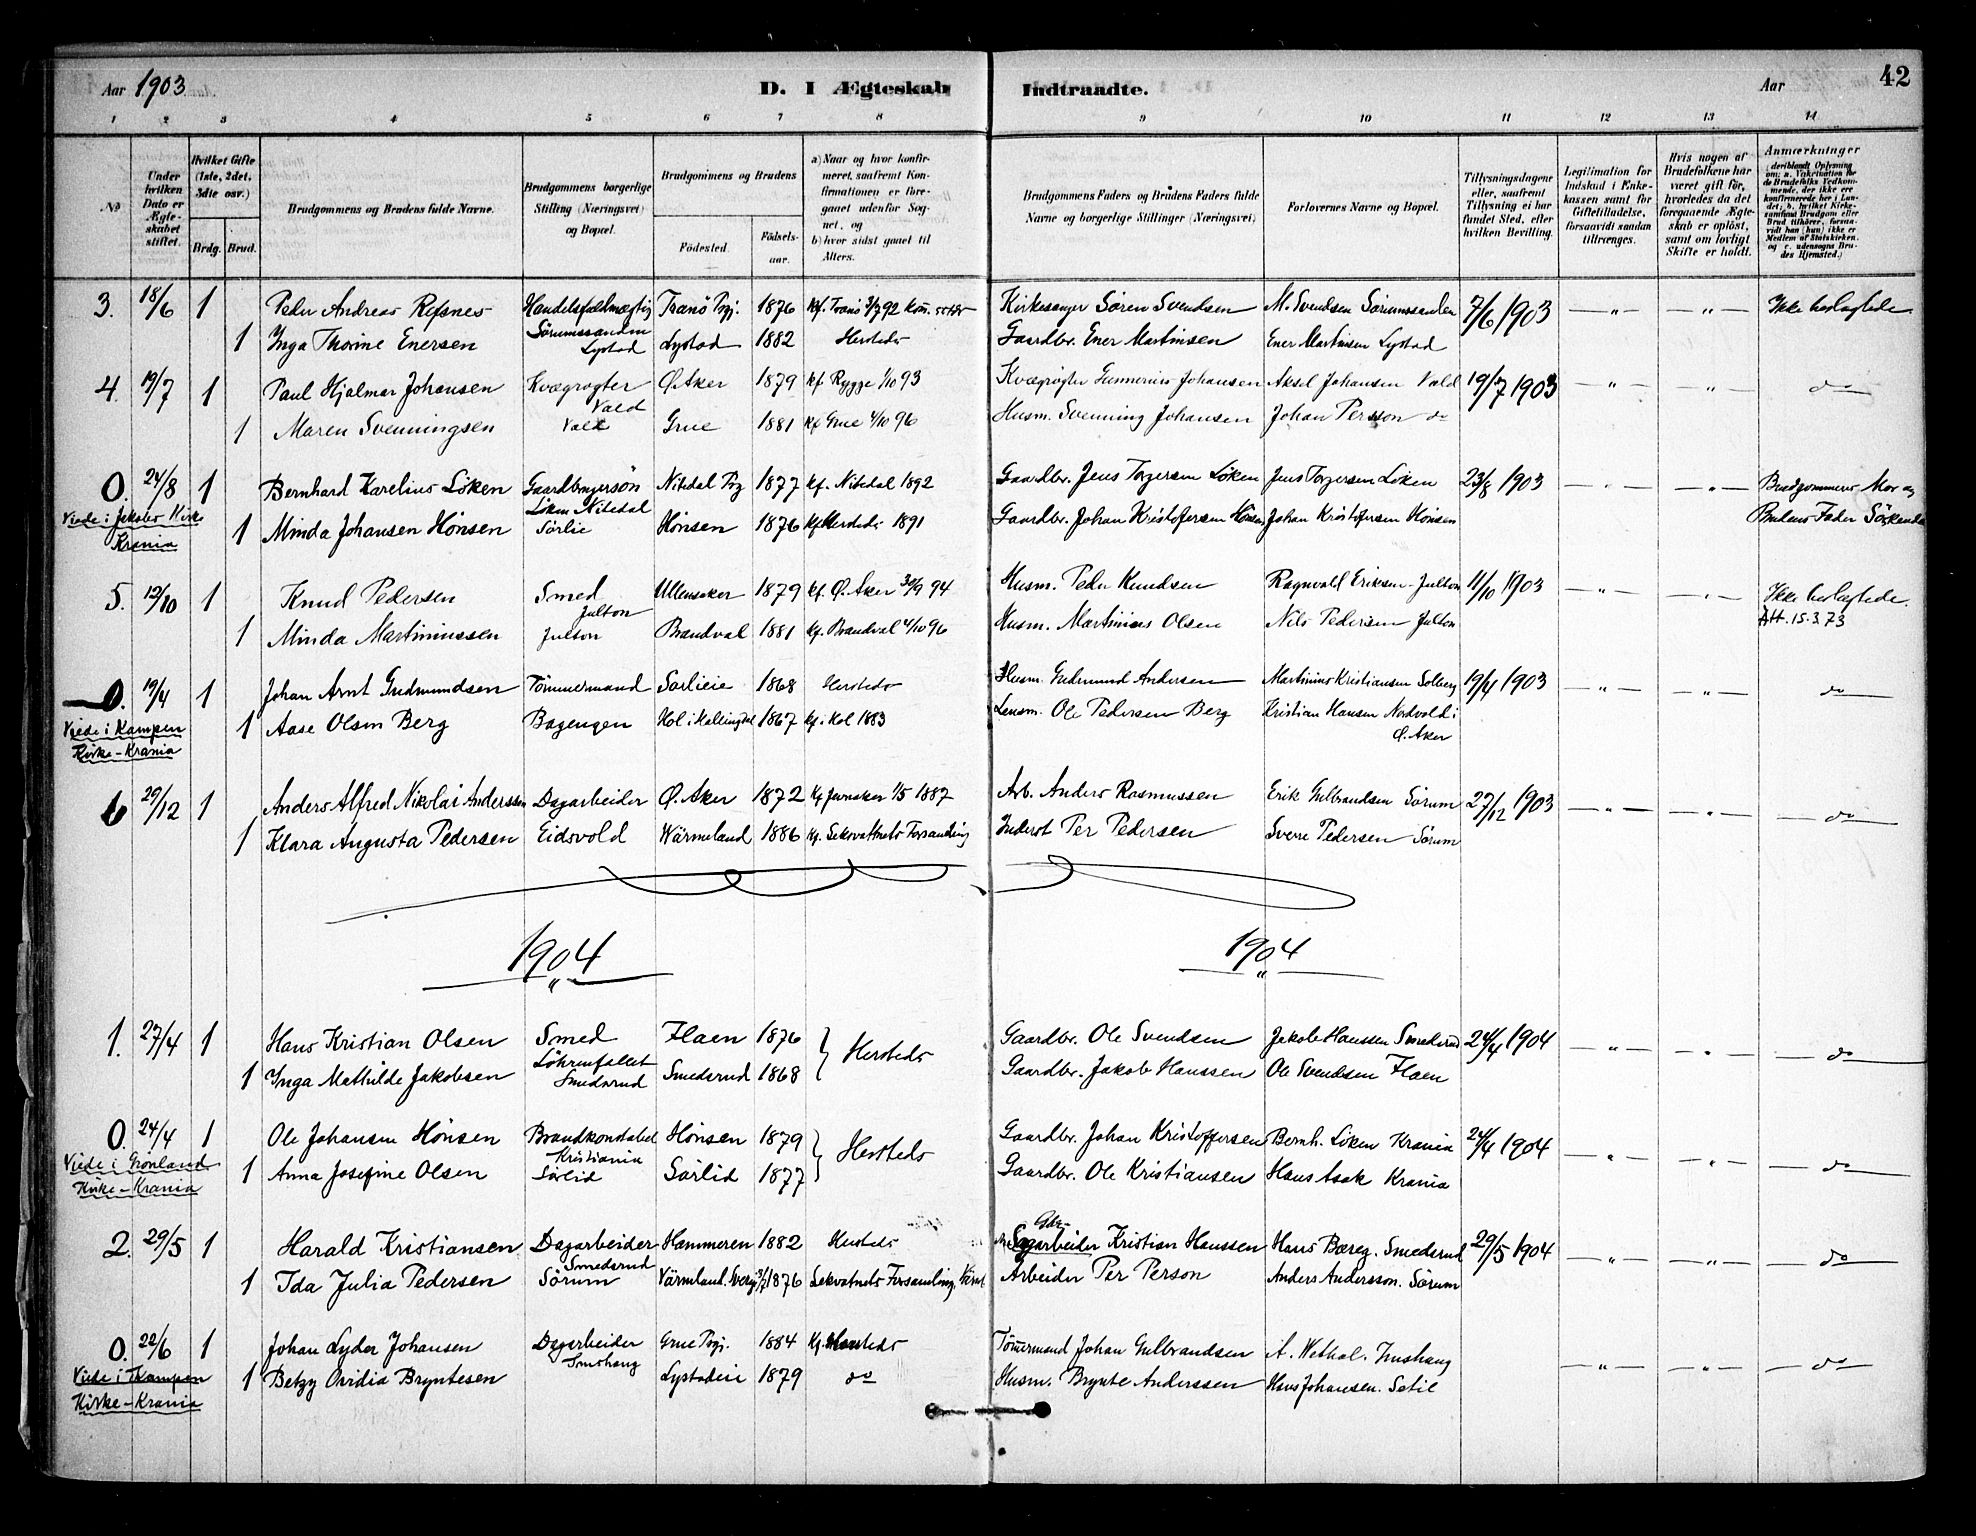 Aar 1903. D. I Ægteskab Indtraadte. Aar 42
1 2 3 4 5 6 7 8 9 10 11 12 13 14
№
Under hvilken Dato er Ægteskabet stiftet.
Hvilket Gifte (1ste, 2det, 3die osv.)
Brdg. Brud.
Brudgommens og Brudens fulde Navne.
Brudgommens borgerlige Stilling (Næringsvei) og Bopæl.
Brudgommens og Brudens
Fødested. Fødselsaar.
a) Naar og hvor konfirmeret, saafremt Konfirmationen er foregaaet udenfor Sognet, og
b) hvor sidst gaaet til Alters.
Brudgommens Faders og Brudens Faders fulde Navne og borgerlige Stillinger (Næringsvei)
Forlovernes Navne og Bopæl.
Tillysningsdagene eller, saafremt Tillysning ei har fundet Sted, efter hvilken Bevilling.
Legitimation for Indskud i Enkekassen samt for Giftetilladelse, forsaavidt saadan tiltrænges.
Hvis nogen af Brudefolkene har været gift før, hvorledes da det foregaaende Ægteskab er opløst, samt om lovligt Skifte er holdt.
Anmærkninger (deriblandt Oplysning om: a. Vakcination for de Brudefolks Vedkommende, der ikke ere konfirmerede her i Landet; b. hvilket Kirkesamfund Brudgom eller Brud tilhører, forsaavidt han (hun) ikke er Medlem af Statskirken, og c. udensogns Brudes Hjemsted.)
3. 18/6 1 Peder Andreas Refsnes Handelsfuldmægtig Tranö Pgj. 1876 Kf. Tranö 3/7 92 Kirkesanger Sören Svendsen M. Svendsen Sørumsanden 7/6 1903 — " — — " — Ikke beslægtede
Sörumssanden
1 Inga Thorine Enersen Lystad Lystad 1882 Hersteds Gaardbr. Ener Martinsen Ener Martinsen Lystad
4. 19/7 1 Paul Hjalmar Johansen Kvægrögter Ø. Aker 1879 Kf Rygge 1/10 93 Kvægrögter Gunnerius Johansen Aksel Johansen Vald 19/7 1903 — " — — " — do
Vald
1 Maren Svenningsen Vald Grue 1881 Kf Grue 4/10 96 Husm. Svenning Johansen Johan Persson do
0. 24/8 1 Bernhard Karelius Löken Gaardbrugersön Nitedal Pgj 1877 Kf. Nitedal 1892 Gaardbr. Jens Torgersen Löken Jens Torgersen Löken 23/8 1903 — " — — " — Brudgommens Mor og
Viede i Jakobs Kirke Krania
Löken Nitedal
1 Minda Johansen Hönsen Sörlie Hönsen 1876 Kf Hersteds 1891 Gaardbr. Johan Kristofersen Hönsen Johan Kristofersen Hönsen Brudens Fader Söskende
5. 12/10 1 Knud Pedersen Smed Ullensaker 1879 Kf. Ø. Aker 30/9 94 Husm. Peder Knudsen Ragnvald Eriksen Julton 11/10 1903 — " — — " — Ikke beslægtede.
Julton
1 Minda Martiniussen Julton Brandval 1881 Kf. Brandval 4/10 96 Husm. Martinius Olsen Nils Pedersen Julton Att. 15.3.73
0. 19/4 1 Johan Arnt Gudmundsen Tömmermand Sorlieie 1868 Hersteds Husm. Gudmund Andersen Martinius Kristiansen Solberg 19/4 1903 — " — — " — do
Viede i Kampen Kirke - Krania
1 Aase Olsen Berg Bagengen Hol i Hallingdal 1867 Kf. Hol 1883 Lensm. Ole Pedersen Berg Kristian Hansen Nordvold i
Ø. Aker
6 29/12 1 Anders Alfred Nikolai Anderssen Dagarbeider Ø. Aker 1872 Kf Jevnaker 1/5 1887 Arb. Anders Rasmussen Erik Gulbrandsen Sørum 27/12 1903 — " — — " — do
1 Klara Augusta Pedersen Eidsvold Wärmeland 1886 Kf. Sekvattnets Forsamling Inderst Per Pedersen Sverre Pedersen Sörum
1904 1904
1. 27/4 1 Hans Kristian Olsen Smed Flaen 1876 } Hersteds Gaardbr. Ole Svendsen Jakob Hanssen Smedsrud 24/4 1904 — " — — " — do
Löhrenfallet
1 Inga Mathilde Jakobsen Smedsrud Smedsrud 1868 Gaardbr. Jakob Hanssen Ole Svendsen Flaen
0. 24/4 1 Ole Johansen Hönsen Brandkonstabel Hönsen 1879 } Hersteds Gaardbr. Johan Kristoffersen Bernh. Löken Krania 24/4 1904 — " — — " — do
Viede i Grönland Kirke - Krania
Kristiania
1 Anna Josefine Olsen Sörlid Sörlid 1877 Gaardbr. Ole Kristiansen Hans Asak Krania
2. 29/5 1 Harald Kristiansen Dagarbeider Hammeren 1882 Hersteds Sagarbeider Kristian Hanssen Hans Bæreg. Smedsrud 29/5 1904 — " — — " — do
Gbr.
Smedsrud
1 Ida Julia Pedersen Sörum Värmland. Sverig 3/7 1876 Sekvatnets Forsamling. Arbeider Per Person Anders Andersson. Sörum
0. 22/6 1 Johan Lyder Johansen Dagarbeider Grue Pgj. 1884 Kf. Hersteds Tömmermand Johan Gulbrandsen A. Wethal. Imshaug — " — — " — do
Viede i Kampen Kirke - Krania
Imshaug
1 Betzy Ovidia Bryntesen Lystadeie 1879 do Husm. Brynte Anderssen Hans Johansen. Setie